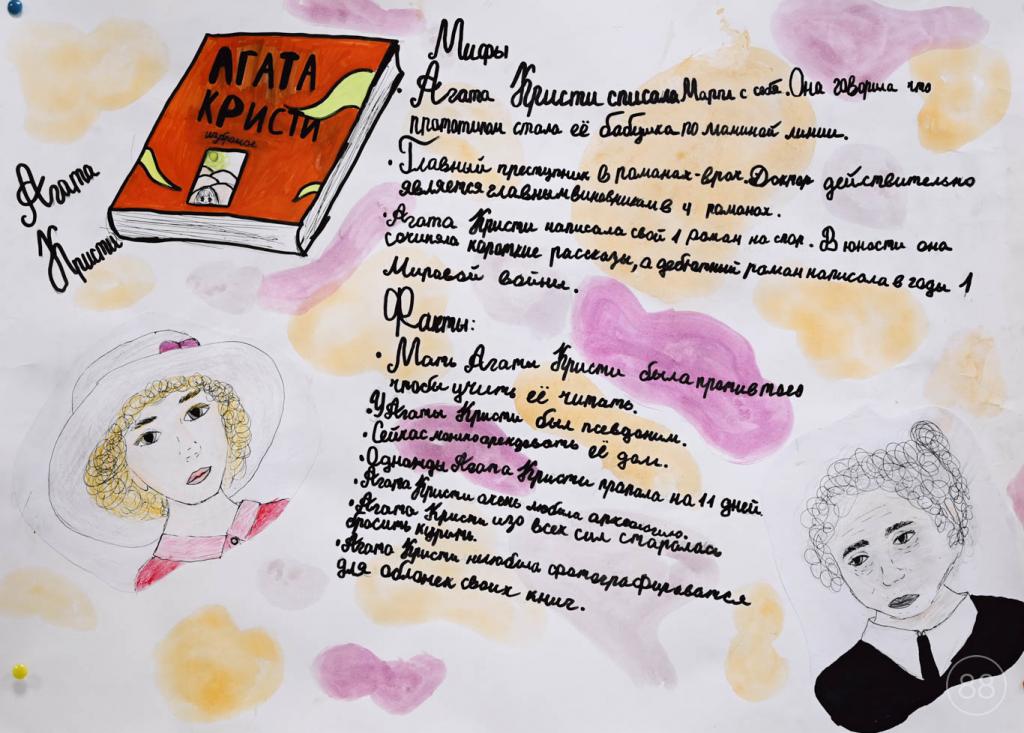 АГАТА
КРИСТИ
избранное
Агата
Кристи
Мифы
· Агата Кристи списала Марпл с себя. Она говорила что
прототипом стала её бабушка по маминой линии.
· Главный преступник в романах-врач. Доктор действительно
является главным виновником в 4 романах.
· Агата Кристи написала свой 1 роман на спор. В юности она
сочиняла короткие рассказы, а дебютный роман написала в годы 1
Мировой войны.
Факты:
· Мать Агаты Кристи была против того
чтобы учить её читать.
· У Агаты Кристи был псевдоним.
· Сейчас можно арендовать её дом.
· Однажды Агата Кристи пропала на 11 дней
· Агата Кристи очень любила археологию.
· Агата Кристи изо всех сил старалась
бросить курить.
· Агата Кристи нелюбила фотографироватся
для обложек своих книг.
88